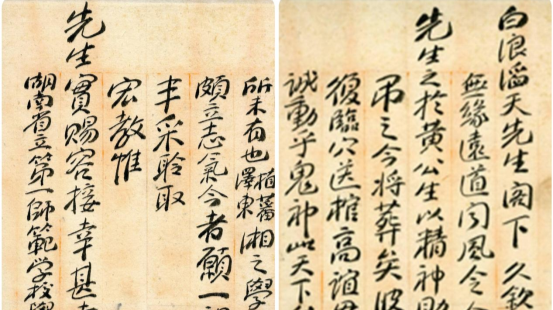 白浪滔天先生閣下久欽
無緣遠道聞風令人
先生之於黃公生以精神助
吊之今將葬矣波
復臨穴送棺高誼
誠動乎鬼神此天下
所未有也植蕃澤東湘之學
頗立志氣今者願一
丰采聆取
宏教惟
先生實賜容接幸甚
湖南省立第一師範學校